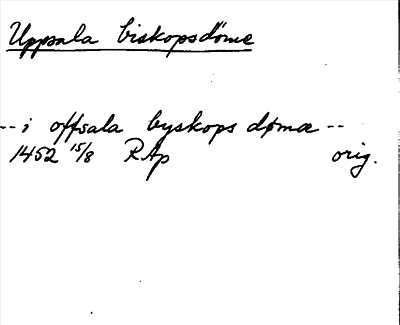 Uppsala biskopsdöme
-- i offsala byskops dømæ --
1452 15/8 RAp orig.